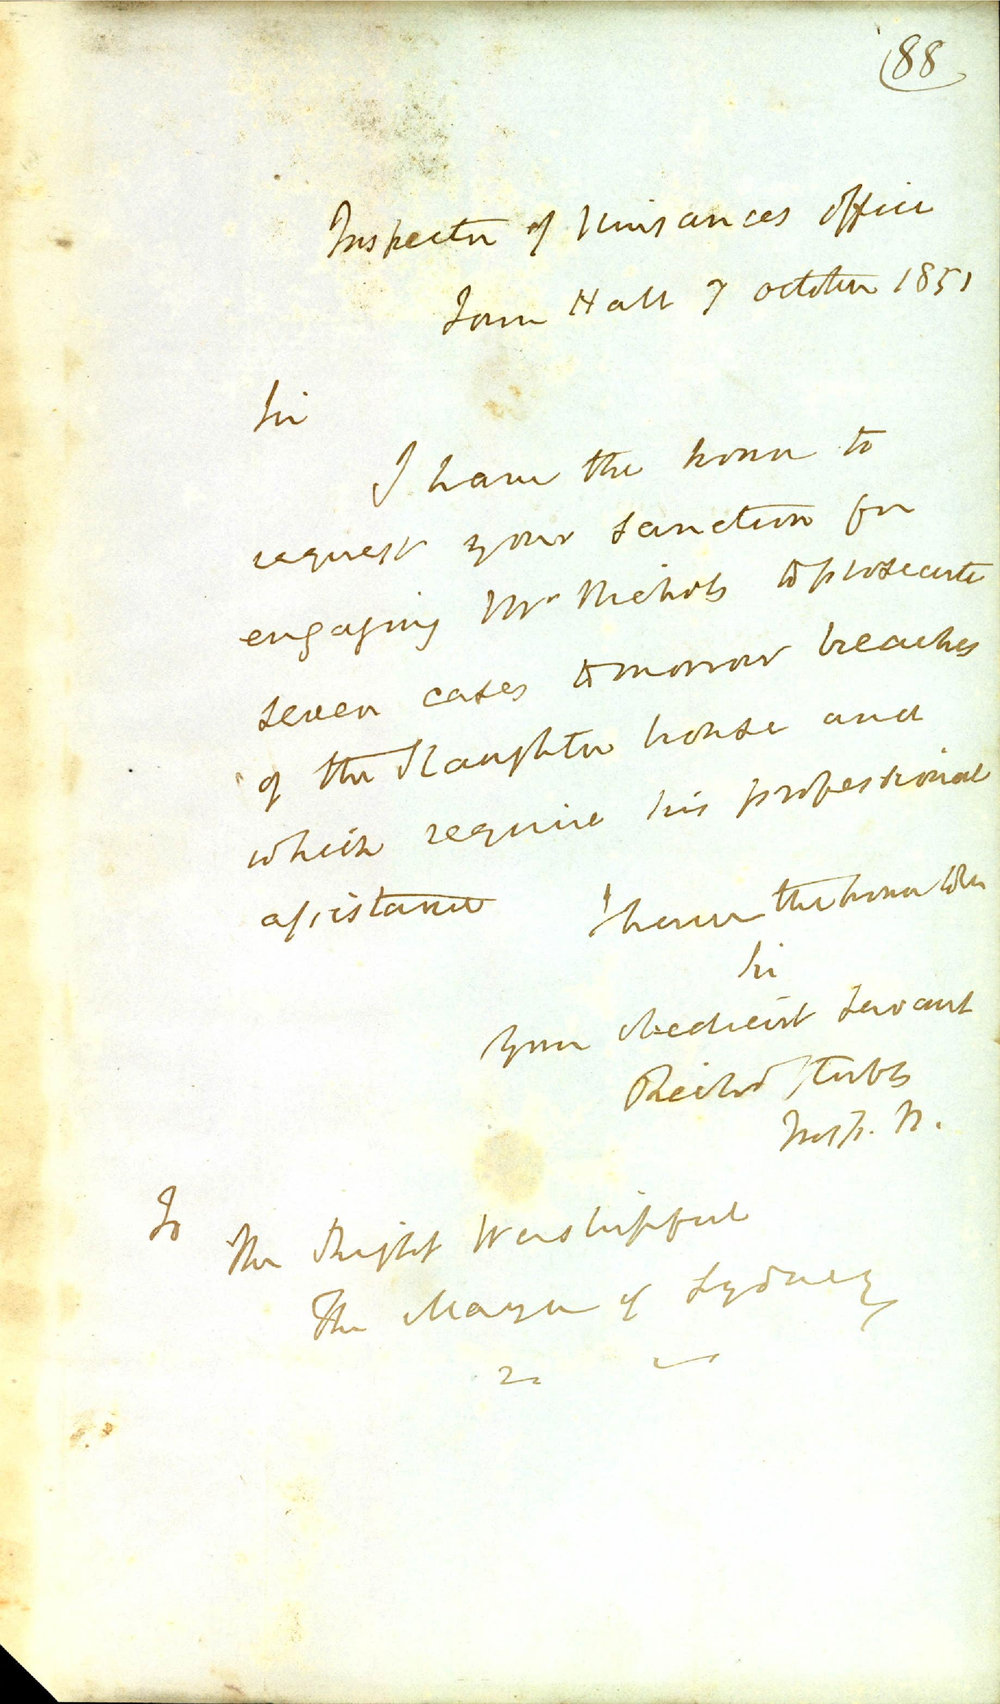 88
Inspector of Nuisances Office
Town Hall 7 October 1851
Sir
I have the honor to
request your sanction for
engaging Mr Nichols to prosecute
seven cases tomorrow breaches
of the Slaughter house and
which require his professional
assistance I have the honor to be
Sir
Your obedient Servant
Richd Stubbs
Insp. N.
To
The Right Worshipful
The Mayor of Sydney